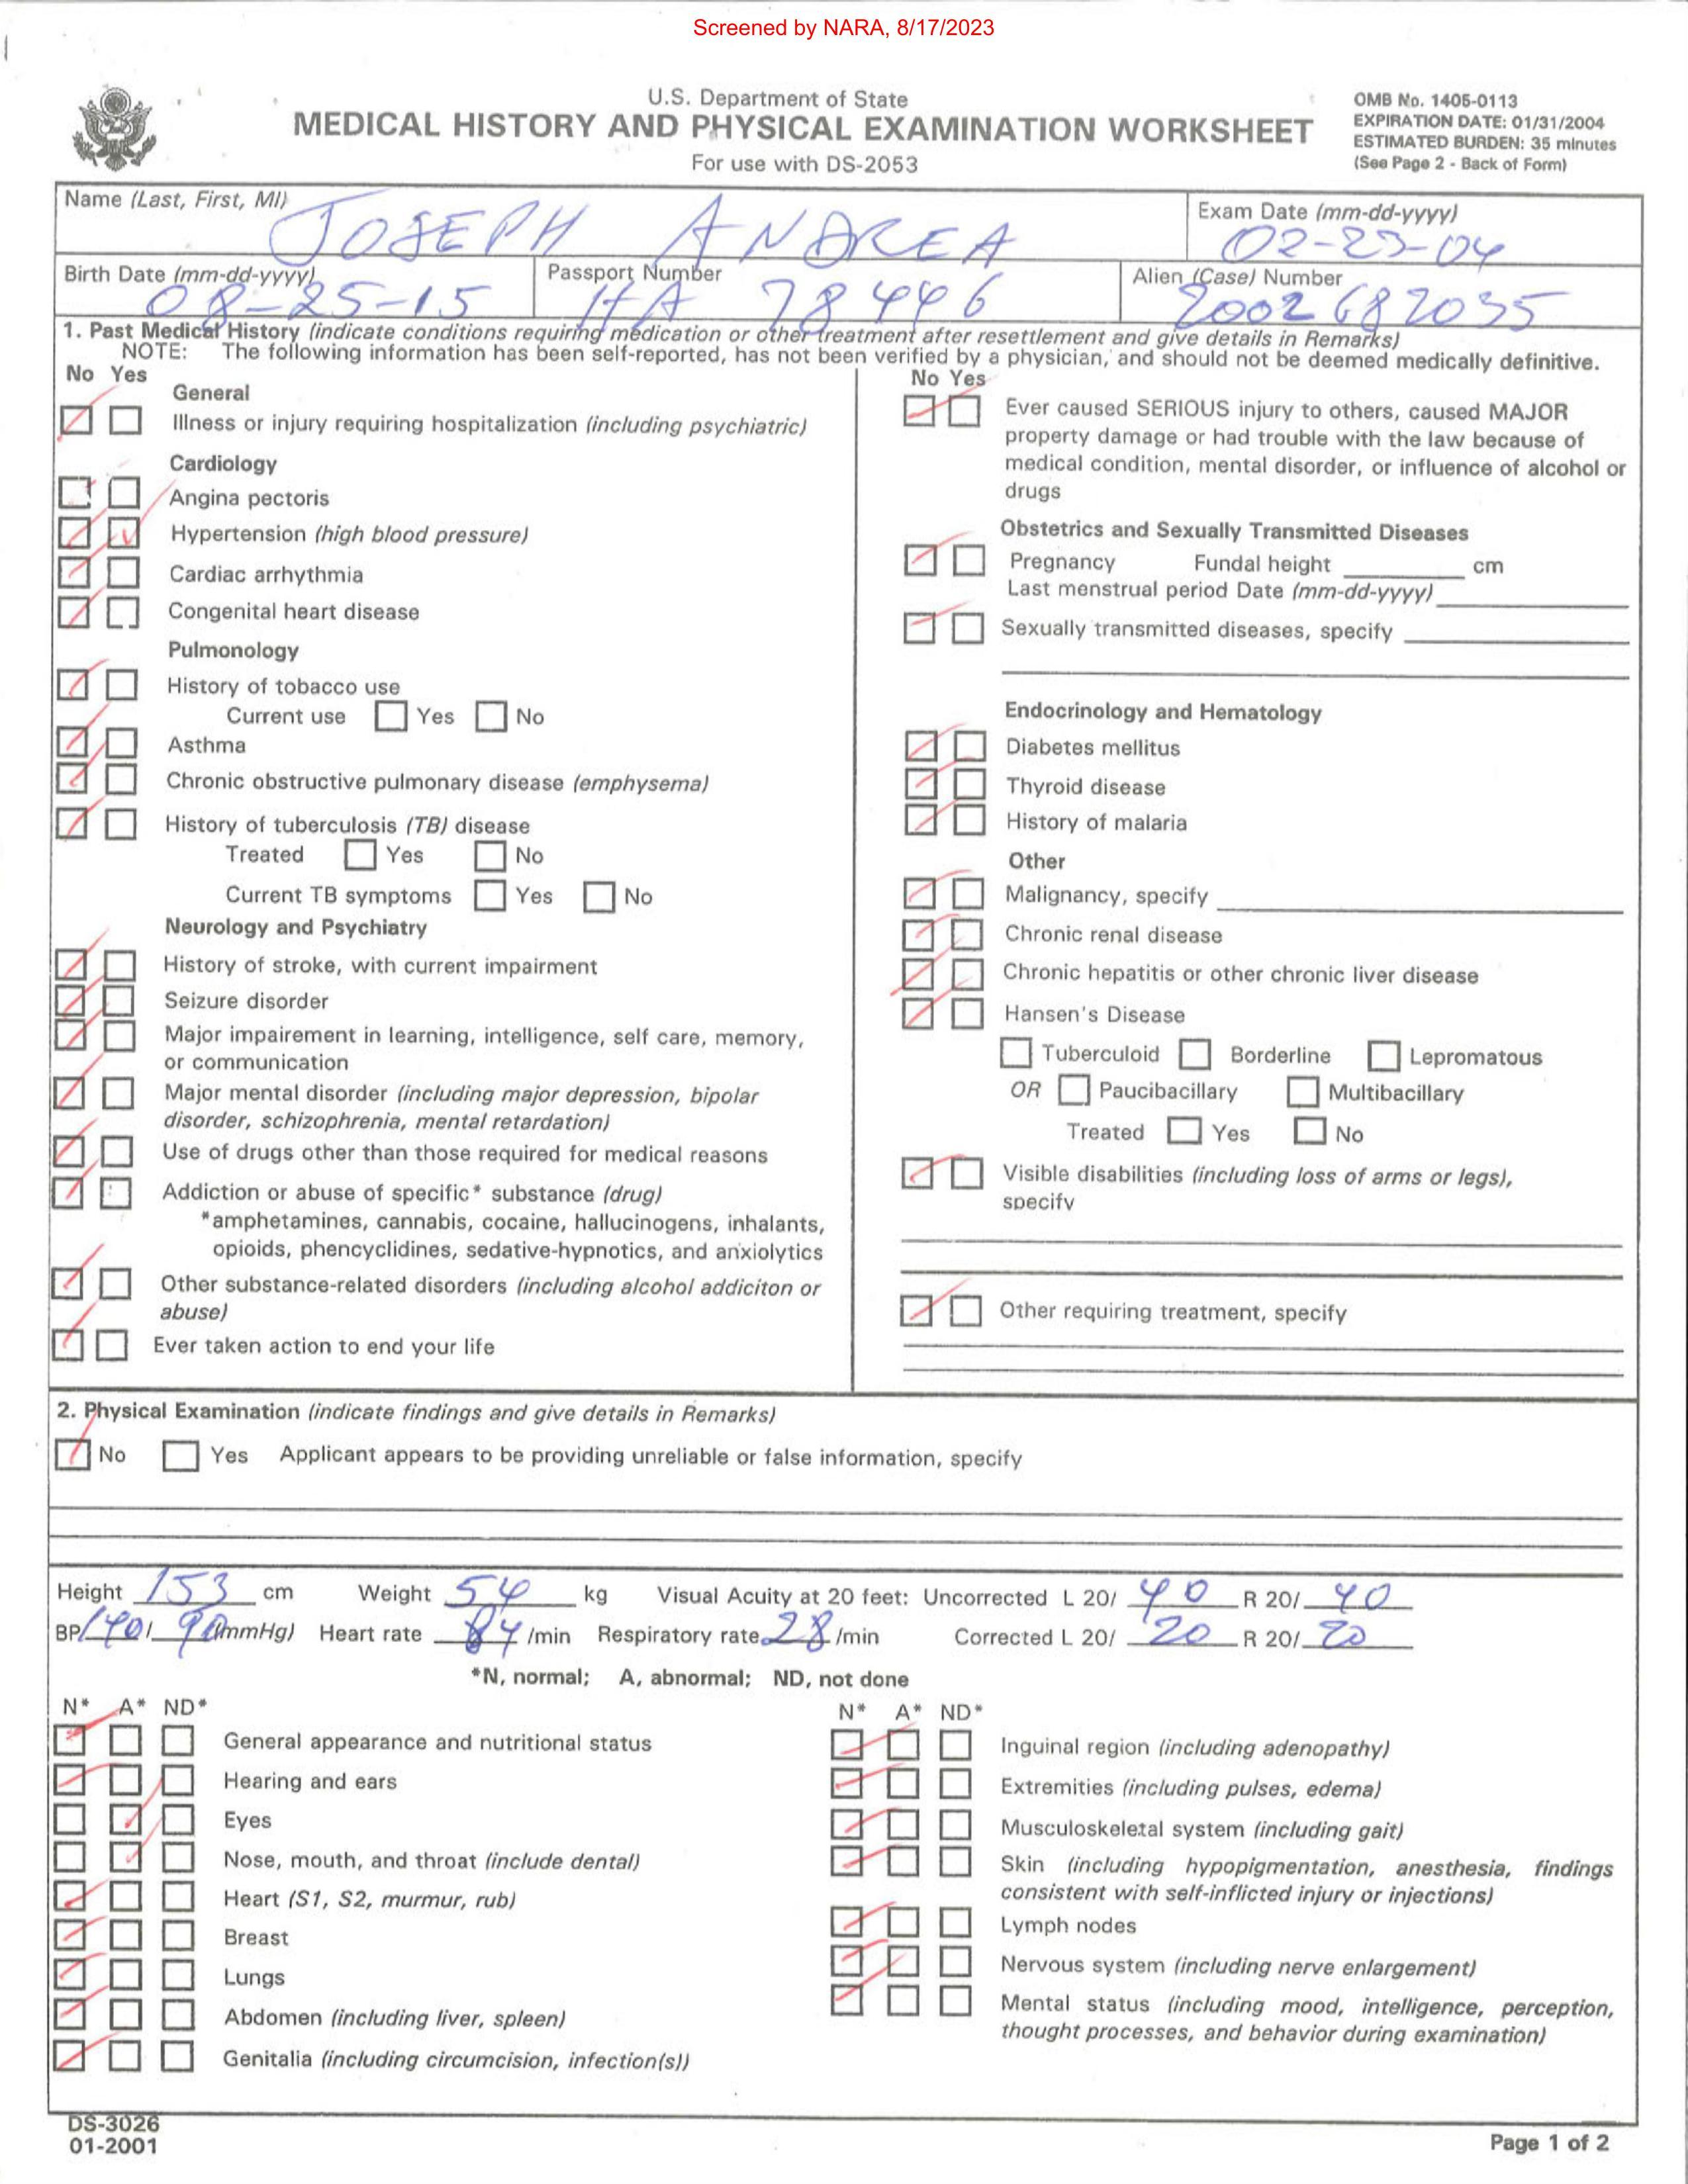 Screened by NARA, 8/17/2023
U.S. Department of State
MEDICAL HISTORY AND PHYSICAL EXAMINATION WORKSHEET
For use with DS-2053
OMB No. 1405-0113
EXPIRATION DATE: 01/31/2004
ESTIMATED BURDEN: 35 minutes
(See Page 2 - Back of Form)
Name (Last, First, MI)
JOSEPH ANDREA
Exam Date (mm-dd-yyyy)
02-23-04
Birth Date (mm-dd-yyyy)
08-25-15
Passport Number
HA 78446
Alien (Case) Number
2002682035
1. Past Medical History (indicate conditions requiring medication or other treatment after resettlement and give details in Remarks)
NOTE: The following information has been self-reported, has not been verified by a physician, and should not be deemed medically definitive.
No Yes
General
Illness or injury requiring hospitalization (including psychiatric)
Cardiology
Angina pectoris
Hypertension (high blood pressure)
Cardiac arrhythmia
Congenital heart disease
Pulmonology
History of tobacco use
Current use Yes No
Asthma
Chronic obstructive pulmonary disease (emphysema)
History of tuberculosis (TB) disease
Treated Yes No
Current TB symptoms Yes No
Neurology and Psychiatry
History of stroke, with current impairment
Seizure disorder
Major impairement in learning, intelligence, self care, memory,
or communication
Major mental disorder (including major depression, bipolar
disorder, schizophrenia, mental retardation)
Use of drugs other than those required for medical reasons
Addiction or abuse of specific* substance (drug)
*amphetamines, cannabis, cocaine, hallucinogens, inhalants,
opioids, phencyclidines, sedative-hypnotics, and anxiolytics
Other substance-related disorders (including alcohol addiciton or
abuse)
Ever taken action to end your life
No Yes
Ever caused SERIOUS injury to others, caused MAJOR
property damage or had trouble with the law because of
medical condition, mental disorder, or influence of alcohol or
drugs
Obstetrics and Sexually Transmitted Diseases
Pregnancy Fundal height cm
Last menstrual period Date (mm-dd-yyyy)
Sexually transmitted diseases, specify
Endocrinology and Hematology
Diabetes mellitus
Thyroid disease
History of malaria
Other
Malignancy, specify
Chronic renal disease
Chronic hepatitis or other chronic liver disease
Hansen's Disease
Tuberculoid Borderline Lepromatous
OR Paucibacillary Multibacillary
Treated Yes No
Visible disabilities (including loss of arms or legs),
specify
Other requiring treatment, specify
2. Physical Examination (indicate findings and give details in Remarks)
No Yes Applicant appears to be providing unreliable or false information, specify
Height 153 cm Weight 54 kg Visual Acuity at 20 feet: Uncorrected L 20/ 40 R 20/ 40
BP 140/ 90 (mmHg) Heart rate 84 /min Respiratory rate 28 /min Corrected L 20/ 20 R 20/ 20
*N, normal; A, abnormal; ND, not done
N* A* ND*
General appearance and nutritional status
Hearing and ears
Eyes
Nose, mouth, and throat (include dental)
Heart (S1, S2, murmur, rub)
Breast
Lungs
Abdomen (including liver, spleen)
Genitalia (including circumcision, infection(s))
N* A* ND*
Inguinal region (including adenopathy)
Extremities (including pulses, edema)
Musculoskeletal system (including gait)
Skin (including hypopigmentation, anesthesia, findings
consistent with self-inflicted injury or injections)
Lymph nodes
Nervous system (including nerve enlargement)
Mental status (including mood, intelligence, perception,
thought processes, and behavior during examination)
DS-3026
01-2001
Page 1 of 2